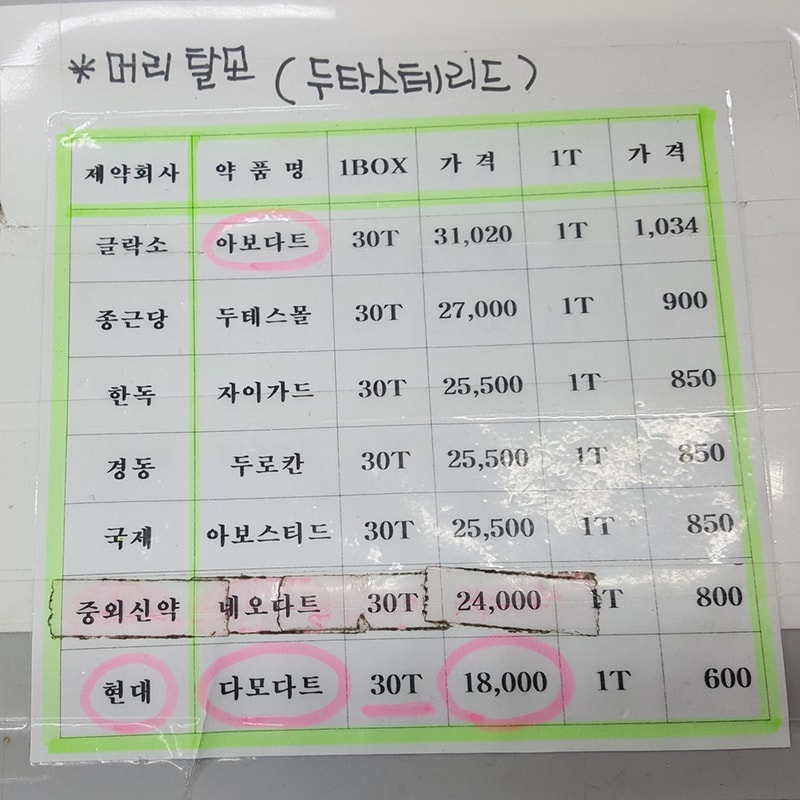 *머리 탈모 (두타스테리드)
제약회사 약 품 명 1BOX 가 격 1T 가 격
글락소 아보다트 30T 31,020 1T 1,034
종근당 두테스몰 30T 27,000 1T 900
한독 자이가드 30T 25,500 1T 850
경동 두로칸 30T 25,500 1T 850
국제 아보스티드 30T 25,500 1T 850
중외신약 네오다트 30T 24,000 1T 800
현대 다모다트 30T 18,000 1T 600